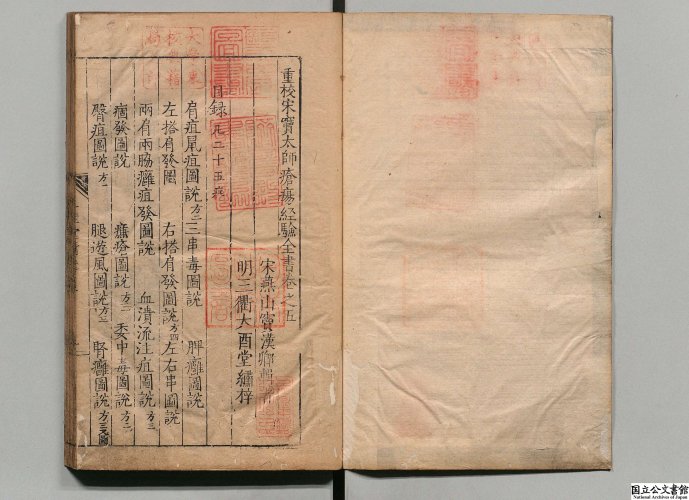 重校宋竇太師瘡瘍經驗全書卷之五
宋燕山竇漢卿輯著
明三衢大酉堂繡梓
目錄 凡二十五症
肩疽尾疽圖說 方二 三串毒圖說 脾癰圖說
左搭肩發圖 右搭肩發圖說 方四 左右串圖說
兩肩兩脇癰疽發圖說 血潰流注疽圖說 方三
痼發圖說 癰瘡圖說 方二 委中毒圖說 方二
臀疽圖說 方一 腿遊風圖說 方二 腎癰圖說
国立公文書館
National Archives of Japan